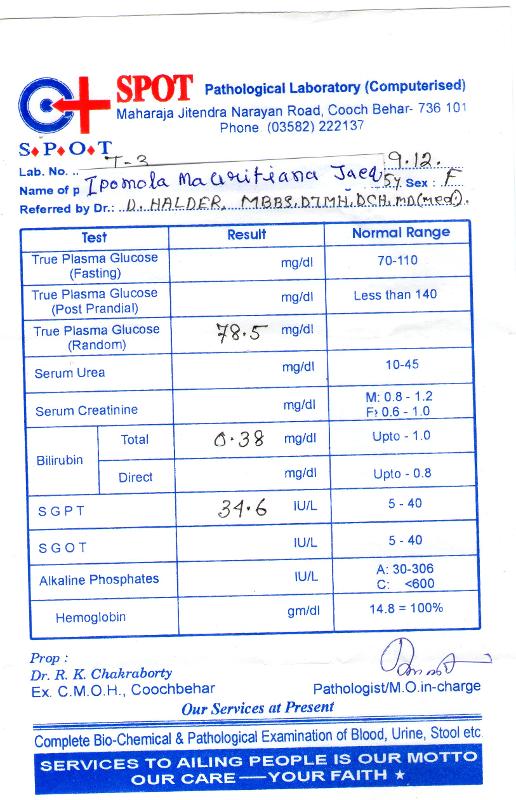 SPOT Pathological Laboratory (Computerised)
Maharaja Jitendra Narayan Road, Cooch Behar- 736 101
Phone (03582) 222137
S♦P♦O♦T
Lab. No. .. T-3 9.12.
Name of p Ipomola Mauritiana Jacq 5y Sex : F
Referred by Dr.: D. HALDER, MBBS, DTMH, DCH, MD (med).
Test Result Normal Range
True Plasma Glucose (Fasting) mg/dl 70-110
True Plasma Glucose (Post Prandial) mg/dl Less than 140
True Plasma Glucose (Random) 78.5 mg/dl
Serum Urea mg/dl 10-45
Serum Creatinine mg/dl M: 0.8 - 1.2
F: 0.6 - 1.0
Bilirubin Total 0.38 mg/dl Upto - 1.0
Direct mg/dl Upto - 0.8
S G P T 34.6 IU/L 5 - 40
S G O T IU/L 5 - 40
Alkaline Phosphates IU/L A: 30-306
C: <600
Hemoglobin gm/dl 14.8 = 100%
Prop :
Dr. R. K. Chakraborty
Ex. C.M.O.H., Coochbehar Pathologist/M.O.in-charge
Our Services at Present
Complete Bio-Chemical & Pathological Examination of Blood, Urine, Stool etc
SERVICES TO AILING PEOPLE IS OUR MOTTO
OUR CARE — YOUR FAITH ★